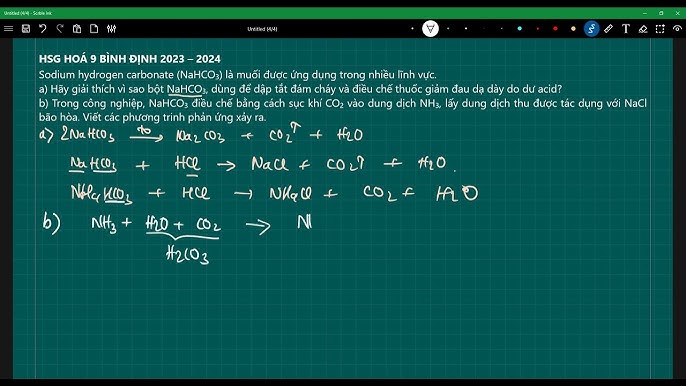 Untitled (4/4) - Scible Ink
Untitled (4/4)
HSG HOÁ 9 BÌNH ĐỊNH 2023 – 2024
Sodium hydrogen carbonate (NaHCO₃) là muối được ứng dụng trong nhiều lĩnh vực.
a) Hãy giải thích vì sao bột NaHCO₃, dùng để dập tắt đám cháy và điều chế thuốc giảm đau dạ dày do dư acid?
b) Trong công nghiệp, NaHCO₃ điều chế bằng cách sục khí CO₂ vào dung dịch NH₃, lấy dung dịch thu được tác dụng với NaCl
bão hòa. Viết các phương trình phản ứng xảy ra.
a) 2NaHCO₃ →(t°) Na₂CO₃ + CO₂↑ + H₂O
NaHCO₃ + HCl → NaCl + CO₂↑ + H₂O.
NH₄HCO₃ + HCl → NH₄Cl + CO₂ + H₂O
b) NH₃ + H₂O + CO₂ → N
H₂CO₃